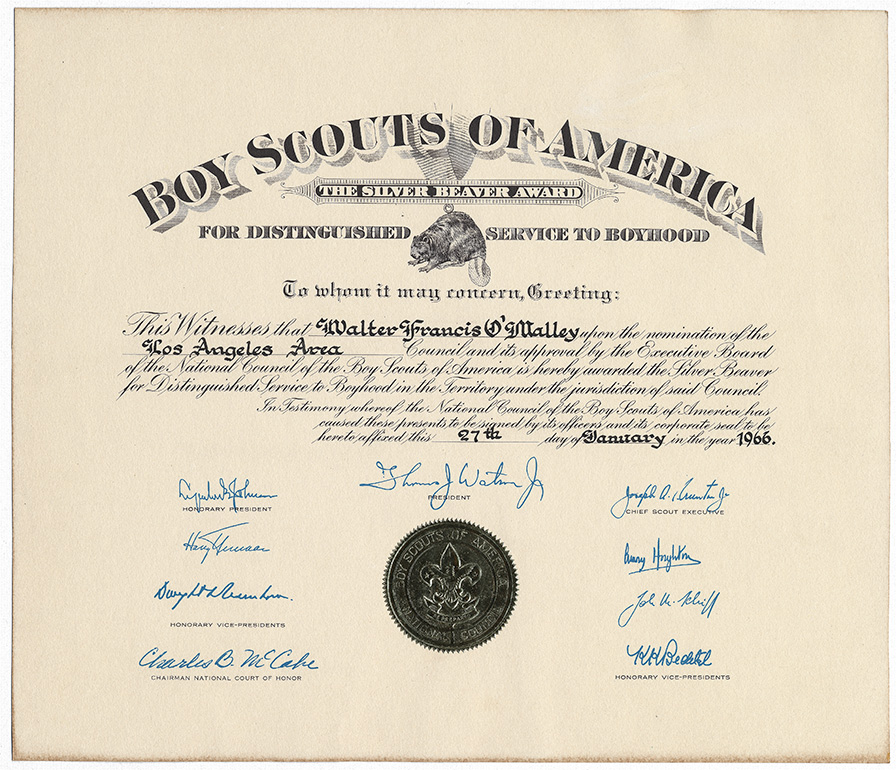 BOY SCOUTS OF AMERICA
THE SILVER BEAVER AWARD
FOR DISTINGUISHED SERVICE TO BOYHOOD
To whom it may concern, Greeting:
This Witnesses that Walter Francis O'Malley upon the nomination of the
Los Angeles Area Council and its approval by the Executive Board
of the National Council of the Boy Scouts of America is hereby awarded the Silver Beaver
for Distinguished Service to Boyhood in the Territory under the jurisdiction of said Council.
In Testimony whereof the National Council of the Boy Scouts of America has
caused these presents to be signed by its officers and its corporate seal to be
hereto affixed this 27th day of January in the year 1966.
Lyndon B. Johnson
HONORARY PRESIDENT
Thomas J Watson Jr
PRESIDENT
Joseph A. Brunton Jr
CHIEF SCOUT EXECUTIVE
Harry Truman
Dwight D Eisenhower
HONORARY VICE-PRESIDENTS
Charles B. McCabe
CHAIRMAN NATIONAL COURT OF HONOR
Amory Houghton
John M. Schiff
KK Bechtel
HONORARY VICE-PRESIDENTS
BOY SCOUTS OF AMERICA
NATIONAL COUNCIL